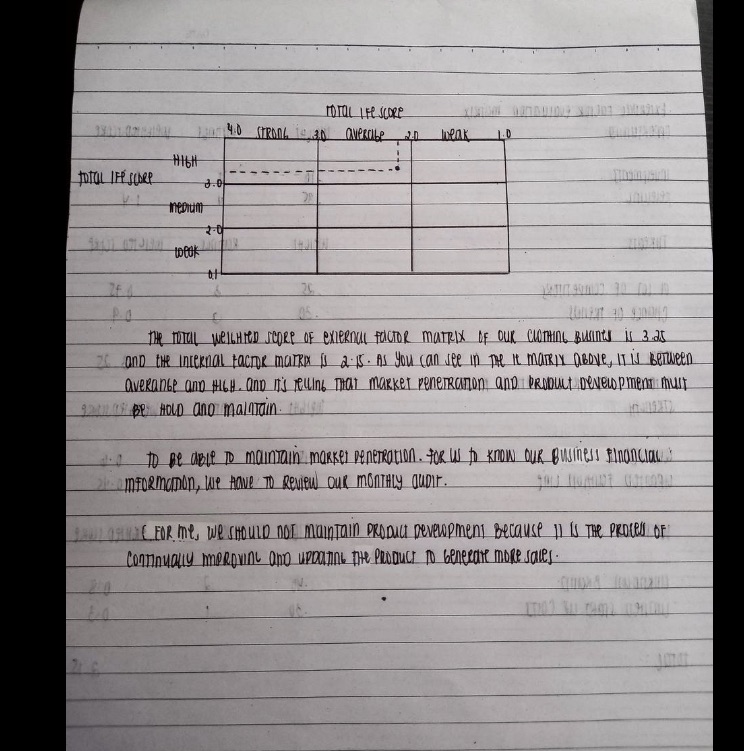 TOTAL IFE SCORE
4.0 STRONG 3.0 average 2.0 weak 1.0
HIGH
TOTAL IFE SCORE
3.0
medium
2.0
weak
0.1
THE TOTAL WEIGHTED SCORE OF EXTERNAL FACTOR MATRIX OF OUR CLOTHING BUSINES IS 3.25
AND THE INTERNAL FACTOR MATRIX IS 2.15. AS YOU CAN SEE IN THE IE MATRIX ABOVE, IT IS BETWEEN
AVERANGE AND HIGH. AND IT'S TELLING THAT MARKET PENETRATION AND PRODUCT DEVELOPMENT MUST
BE HOLD AND MAINTAIN.
TO BE ABLE TO MAINTAIN MARKET PENETRATION. FOR US TO KNOW OUR BUSINESS FINANCIAL
INFORMATION, WE HAVE TO REVIEW OUR MONTHLY AUDIT.
( FOR ME, WE SHOULD NOT MAINTAIN PRODUCT DEVELOPMENT BECAUSE IT IS THE PROCESS OF
CONTINUALLY IMPROVING AND UPDATING THE PRODUCT TO GENERATE MORE SALES.